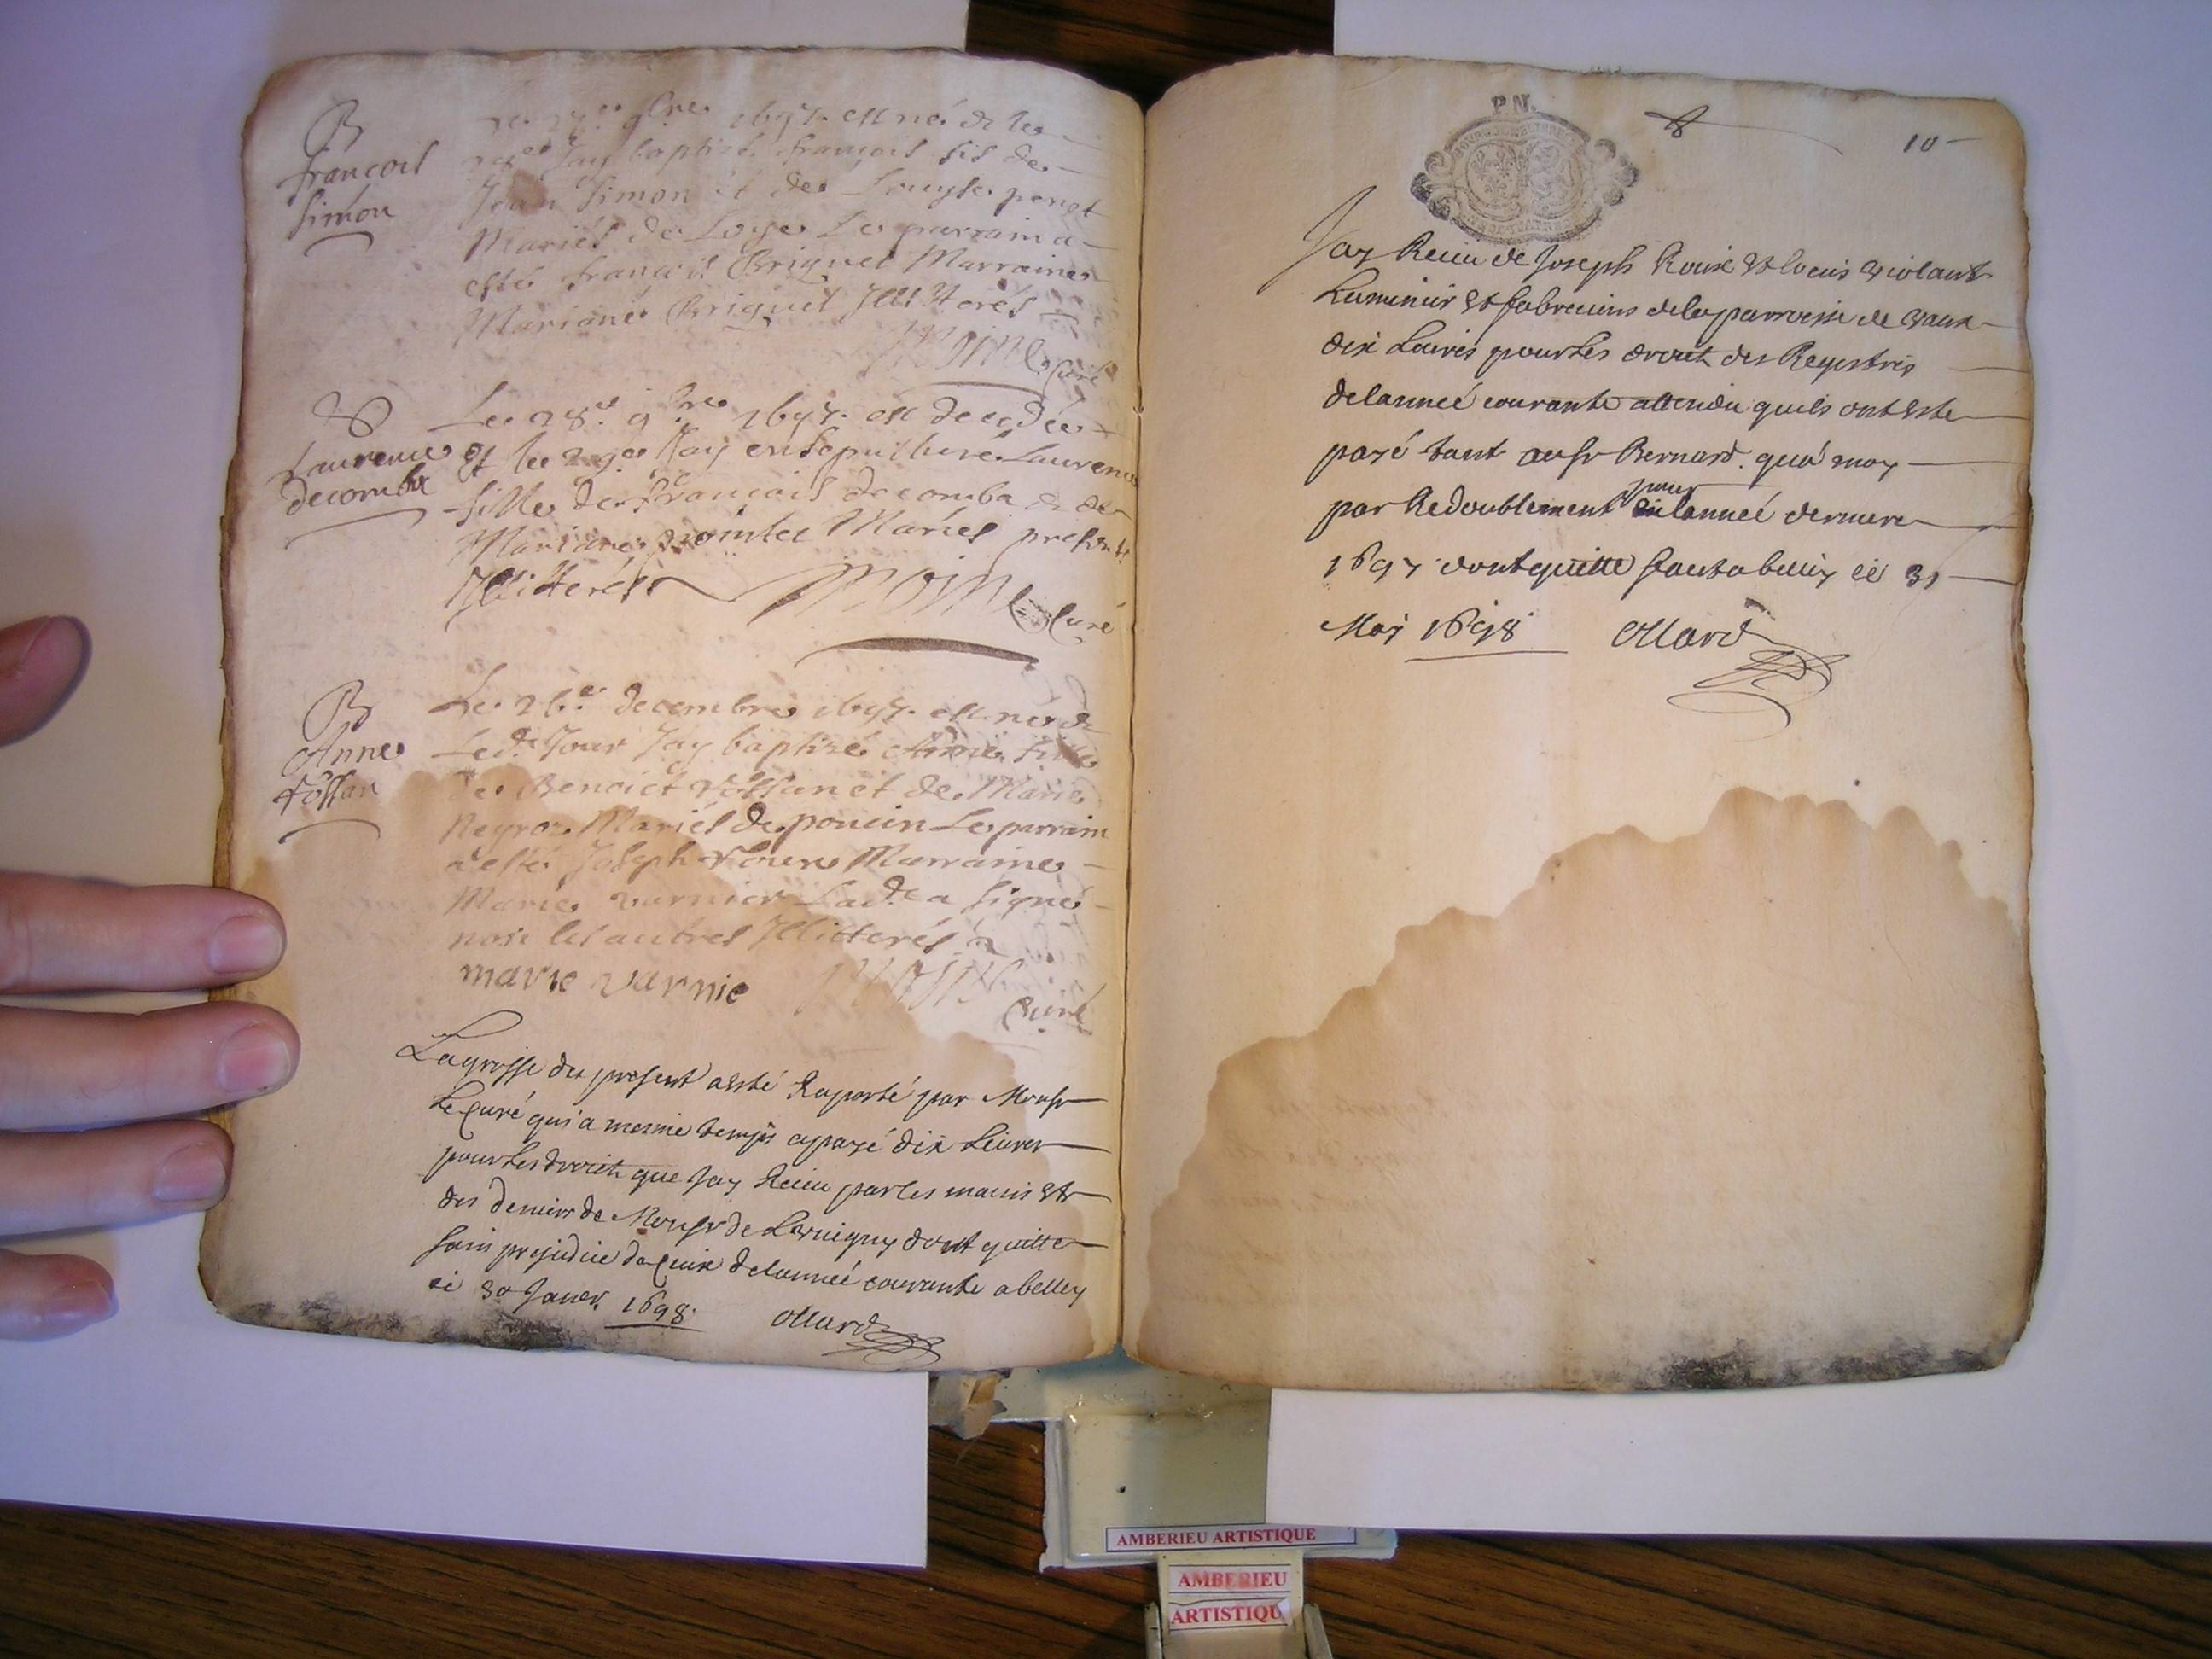 B
francois
simon
Le 27e 9bre 1697. est né & le
28e Jay baptizé françois fils de
Jean Simon et de Louyse penet
Mariés de Loye Le parrain a
esté françois Briguet Marraine
Mariane Briguet Illiterés
Moine Curé
Laurence
decomba
Le 28e 9bre 1697. est decedée
et le 29e Jay ensepulturé Laurence
fille de françois decomba & de
Mariane pointee Mariés presents
Illiterés Moine Curé
B
Anne
Le 26e decembre 1697. est née &
Led. Jour Jay baptizé Anne fille
de Benoict et de Marie
Neyroz Mariés de poncin Le parrain
a esté Joseph Marraine
Marie varnier Lad.te a signé
non les autres Illiterés
marie varnie
Curé
Lagrosse du present aesté Raporté par Monsr
Le Curé qui a mesme temps apayé dix Livres
pour Les droits que Jay Receu par les mains Et
des deniers de Monsr de dont quitte
sans prejudice de Ceux delannée courante abelley
ce 30 Janver 1698.
ollard
P N.
10
Jay Receu de Joseph Roux Et Louis violant
Luminier Et fabreciens de la parroisse de vaux
dix Livres pour Les droit des Regestres
delanneé courante attendu quils ont Este
payé tant au sr Bernard. qua moy
par Redoublement pour lanneé derniere
1697 dont quitte fait a belley ce 31
May 1698 ollard
AMBERIEU ARTISTIQUE
AMBERIEU
ARTISTIQU